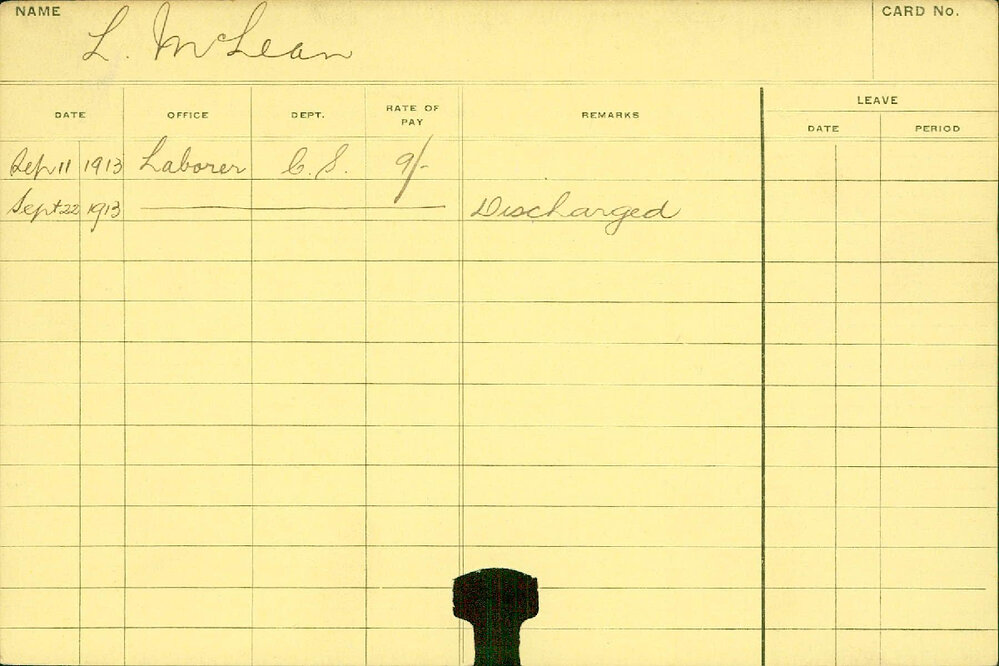 NAME L. McLean CARD No.
DATE OFFICE DEPT. RATE OF PAY REMARKS LEAVE
DATE PERIOD
Sep 11 1913 Laborer C. S. 9/-
Sept 22 1913 Discharged